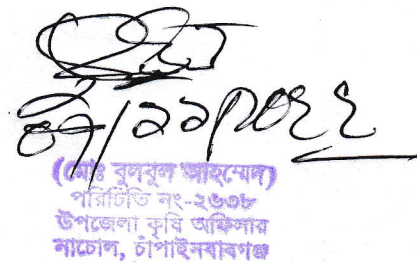 ০৭/১১/২০২২
(মোঃ বুলবুল আহম্মেদ)
পরিচিতি নং-২৬৩৮
উপজেলা কৃষি অফিসার
নাচোল, চাঁপাইনবাবগঞ্জ